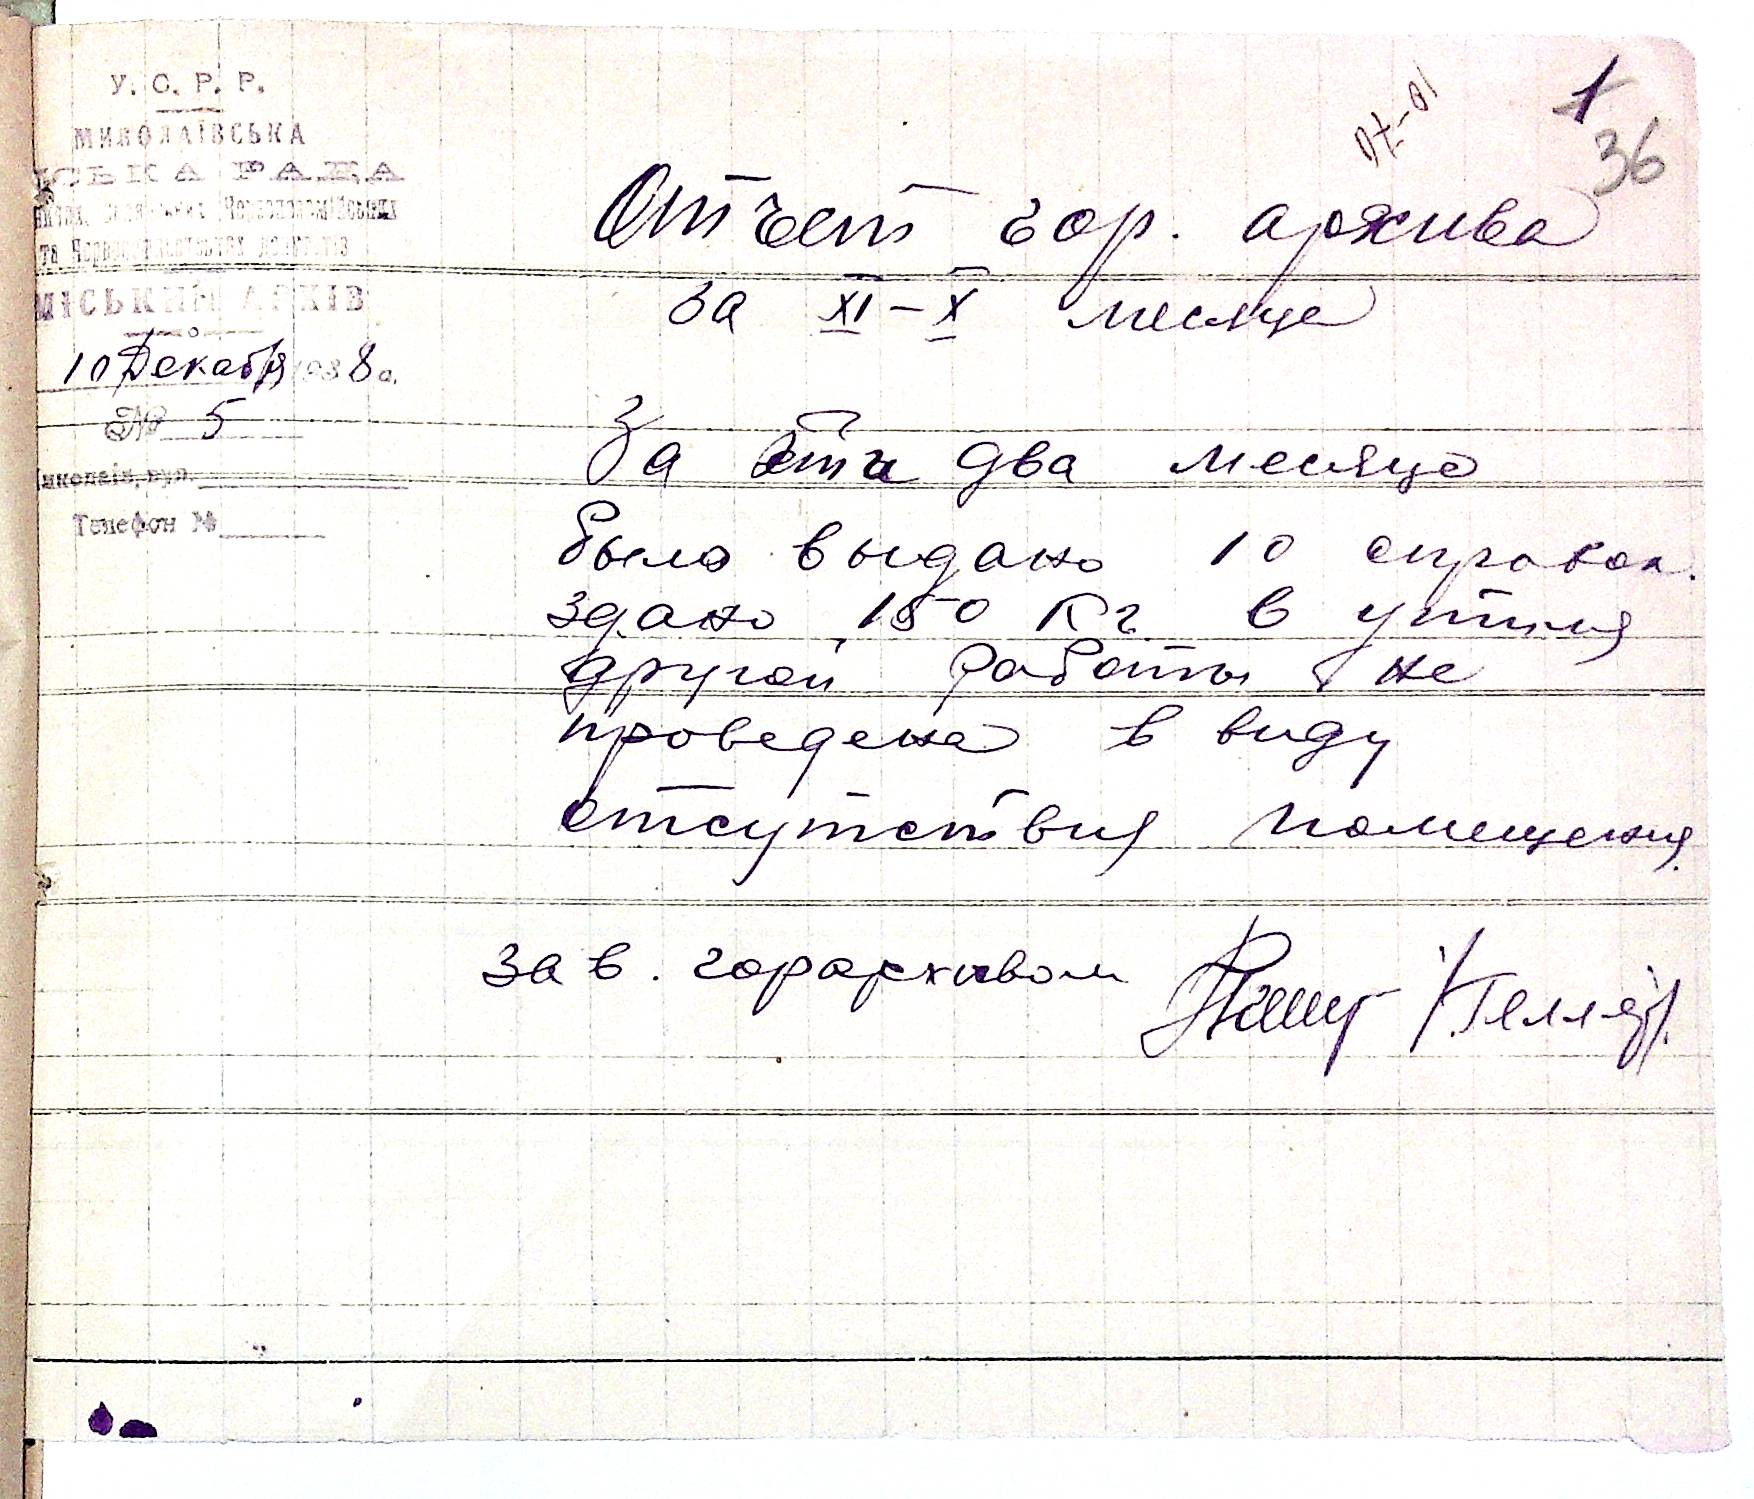 У. С. Р. Р.
МИКОЛАЇВСЬКА
СЬКА РАДА
Червоноармійських
та
МІСЬКИЙ АРХІВ
10 Декабря 1938 р.
№ 5
Миколаїв, вул.
Телефон №
1
36
Отчет гор. архива
за XI – X месяце
За эти два месяце
было выдано 10 справок.
здано 150 Кг. в утиля
другой работы не
проведена в виду
отсутствия помещения.
зав. горархивом